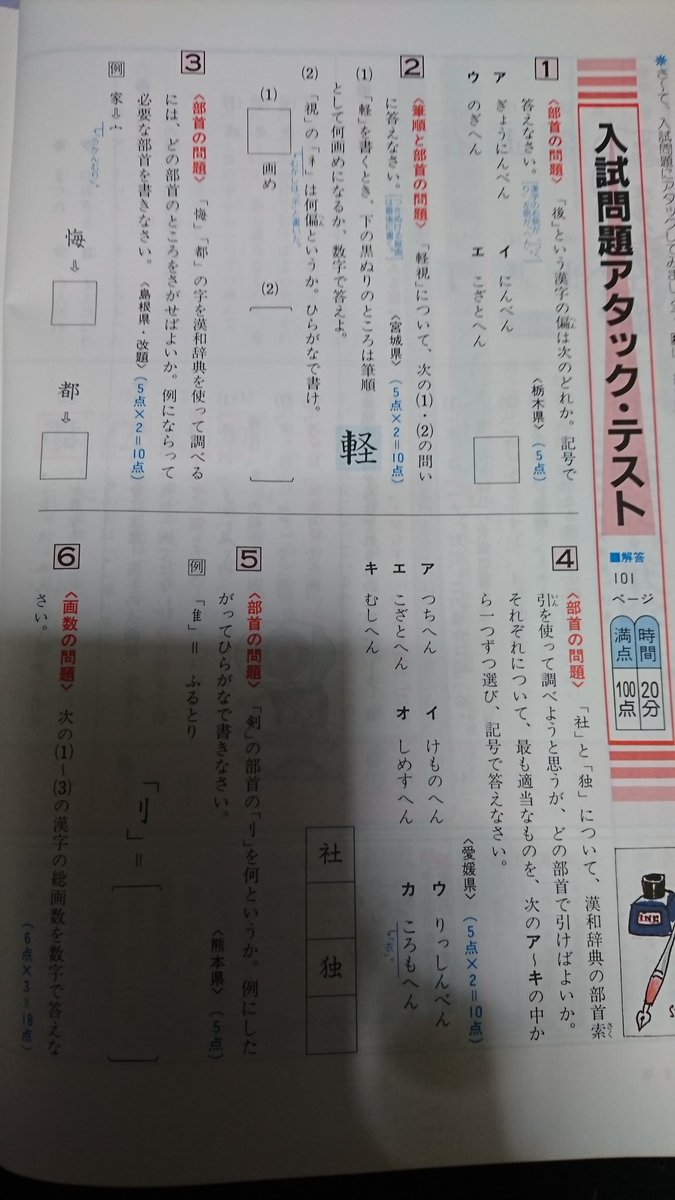 入試問題アタック・テスト
■解答
101
ページ
時間 20分
満点 100点
1
〈部首の問題〉 「後」という漢字の偏は次のどれか。記号で
へん
答えなさい。
〈栃木県〉(5点)
ア ぎょうにんべん イ にんべん
ウ のぎへん エ こざとへん
2
〈筆順と部首の問題〉 「軽視」について、次の(1)・(2)の問い
に答えなさい。
〈宮城県〉(5点×2=10点)
(1) 「軽」を書くとき、下の黒ぬりのところは筆順
として何画めになるか、数字で答えよ。
軽
(2) 「視」の「礻」は何偏というか。ひらがなで書け。
へん
(1) 画め (2)
3
〈部首の問題〉 「悔」「都」の字を漢和辞典を使って調べる
には、どの部首のところをさがせばよいか。例にならって
必要な部首を書きなさい。
〈島根県・改題〉(5点×2=10点)
例 家⇨宀
悔⇨ 都⇨
4
〈部首の問題〉 「社」と「独」について、漢和辞典の部首索
さく
引を使って調べようと思うが、どの部首で引けばよいか。
いん
それぞれについて、最も適当なものを、次のア〜キの中か
ら一つずつ選び、記号で答えなさい。
〈愛媛県〉(5点×2=10点)
ア つちへん イ けものへん ウ りっしんべん
エ こざとへん オ しめすへん カ ころもへん
キ むしへん
社 独
5
〈部首の問題〉 「剣」の部首の「刂」を何というか。例にした
がってひらがなで書きなさい。
〈熊本県〉(5点)
例 「隹」= ふるとり
「刂」=
6
〈画数の問題〉 次の(1)〜(3)の漢字の総画数を数字で答えな
さい。
(6点×3=18点)
INK